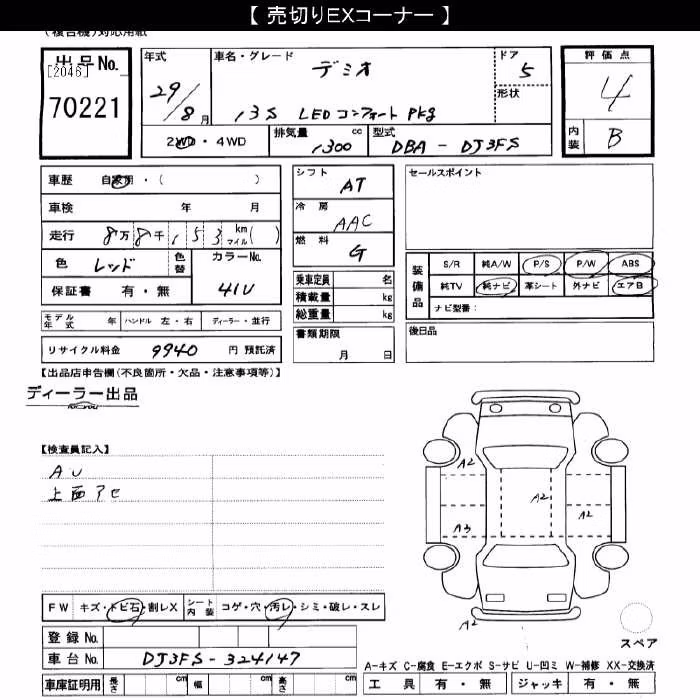 【 売切りEXコーナー 】
(複合機)対応用紙
出品No.
[2046]
70221
年式
29/8月
車名・グレード
デミオ
13S LEDコンフォートPkg
ドア
5
形状
評価点
4
内装
B
2WD・4WD
排気量 1300 cc
型式 DBA - DJ3FS
車歴 自家用・( )
車検 年 月
走行 8万8千153 km マイル( )
色 レッド
色替
カラーNo.
41U
保証書 有・無
モデル年式 年 ハンドル 左・右 ディーラー・並行
リサイクル料金 9940 円 預託済
シフト AT
冷房 AAC
燃料 G
乗車定員 名
積載量 kg
総重量 kg
書類期限
月 日
セールスポイント
装備品
S/R 純A/W P/S P/W ABS
純TV 純ナビ 革シート 外ナビ エアB
ナビ型番:
後日品
【出品店申告欄(不良箇所・欠品・注意事項等)】
ディーラー出品
【検査員記入】
AU
上面アセ
A2
A2
A2
A3
A2
FW キズ・トビ石・割レX シート内装 コゲ・穴・汚レ・シミ・破レ・スレ
登録No.
車台No. DJ3FS-324147
車庫証明用 長さ cm 幅 cm 高さ cm
スペア
A-キズ C-腐食 E-エクボ S-サビ U-凹ミ W-補修 XX-交換済
工具 有・無 ジャッキ 有・無